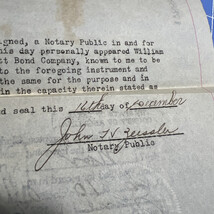 igned, a Notary Public in and for
this day personally appeared William
tt Bond Company, known to me to be
to the foregoing instrument and
the same for the purpose and in
in the capacity therein stated as
d seal this 16th day of December
John H Zeissler
Notary Public